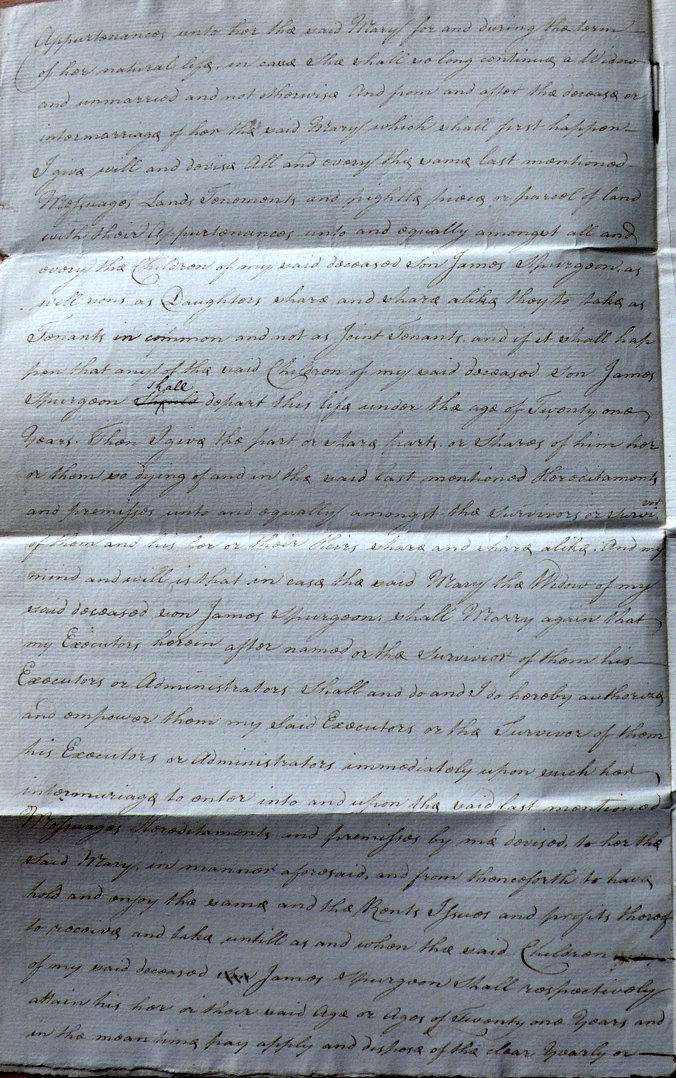 Appurtenances unto her the said Mary for and during the term
of her natural life, in case She shall so long continue a Widow
and unmarried and not otherwise And from and after the decease or
intermarriage of her the said Mary which shall first happen
I give will and devise All and every the same last mentioned
Messuages Lands Tenements and pightle piece or parcel of land
with their Appurtenances unto and equally amongst all and
every the Children of my said deceased Son James Spurgeon, as
well sons as Daughters share and share alike they to take as
Tenants in common and not as Joint Tenants, and if it shall hap
pen that any of the said Children of my said deceased Son James
Spurgeon shall depart this life under the age of Twenty one
Years. Then I give the part or share parts. or Shares of him her
or them so dying of and in the said last mentioned Hereditaments
and premisses unto and equally amongst the Survivors or Survivor
of them and his her or their Heirs share and share alike. And my
mind and will is that in case the said Mary the Widow of my
said deceased son James Spurgeon, shall Marry again that
my Executors herein after named or the Survivor of them his
Executors or Administrators Shall and do and I do hereby authorize
and empower them my Said Executors or the Survivor of them
his Executors or Administrators immediately upon such her
intermariage to enter into and upon the said last mentioned
Messuages Hereditaments and premisses by me devised, to her the
said Mary, in manner aforesaid, and from thenceforth to have
hold and enjoy the same and the Rents Issues and profits thereof
to receive and take untill as and when the said Children
of my said deceased son James Spurgeon Shall respectively
attain his her or their said Age or Ages of Twenty one Years and
in the mean time pay apply and dispose of the clear Yearly or